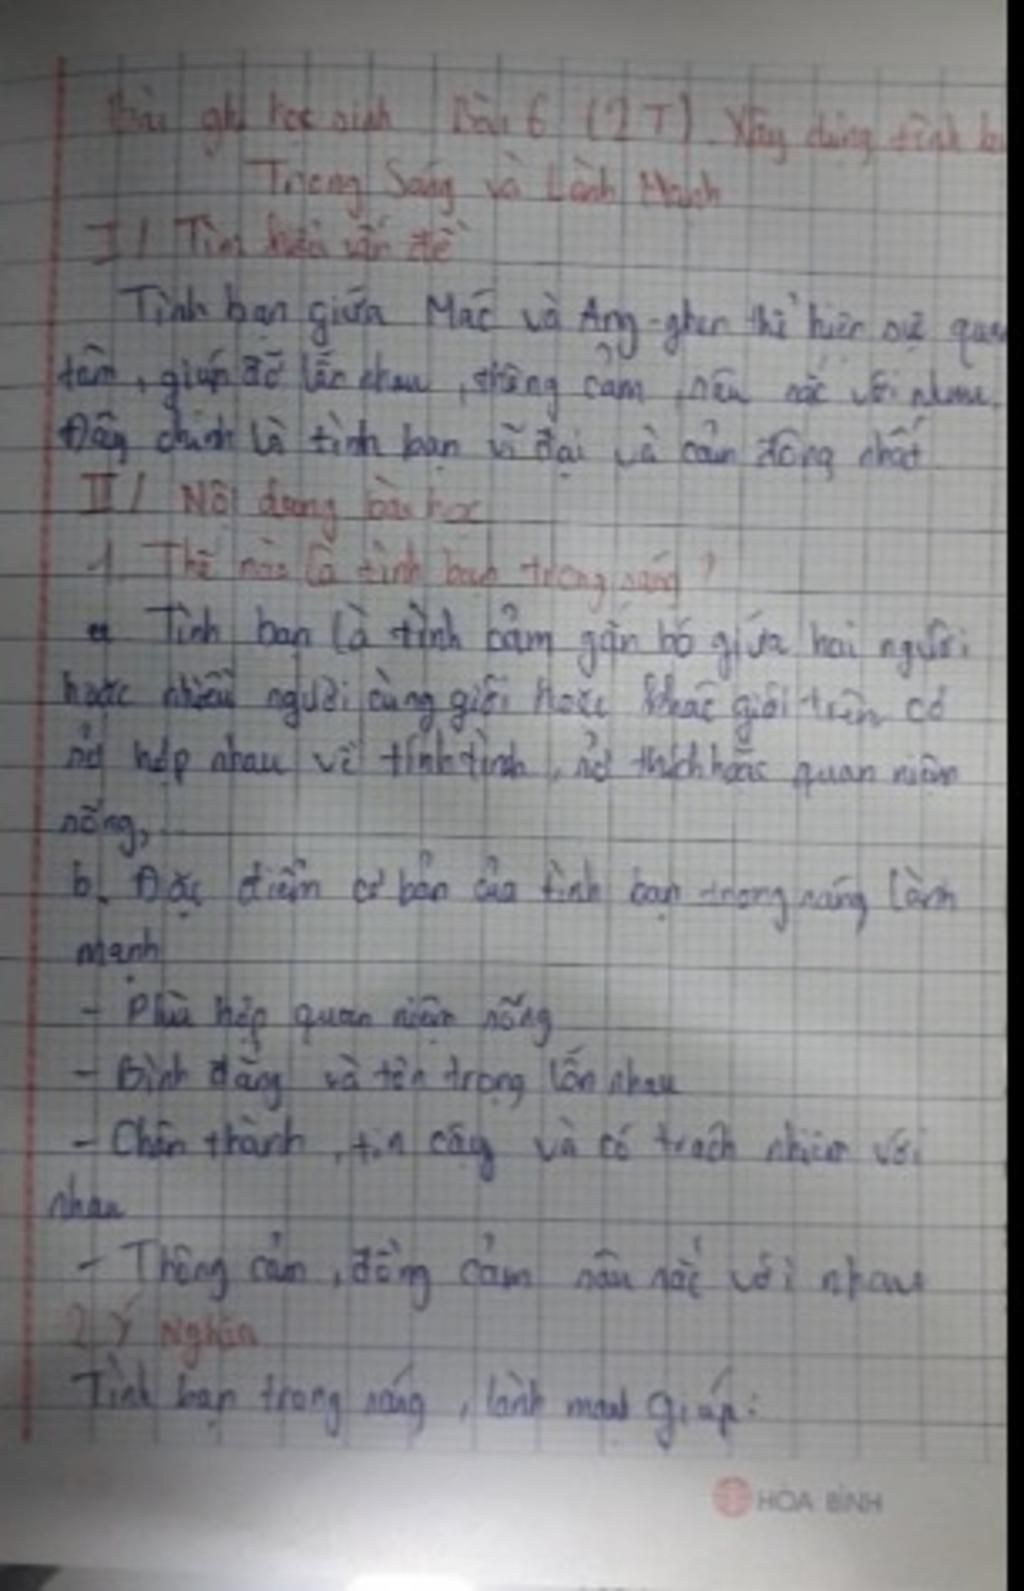 Bài ghi học sinh Bài 6 (2T). Xây dựng tình
Trong Sáng và Lành Mạnh
I/ Tìm hiểu vấn đề
Tình bạn giữa Mác và Ăng-ghen thể hiện sự quan
tâm, giúp đỡ lẫn nhau, thông cảm, sâu sắc với nhau.
Đây chính là tình bạn vĩ đại và cảm động nhất
II/ Nội dung bài học
1. Thế nào là tình bạn trong sáng?
a Tình bạn là tình cảm gắn bó giữa hai người
hoặc nhiều người cùng giới hoặc khác giới trên cơ
sở hợp nhau về tính tình, sở thích hoặc quan niệm
sống,
b. Đặc điểm cơ bản của tình bạn trong sáng lành
mạnh
- Phù hợp quan niệm sống
- Bình đẳng và tôn trọng lẫn nhau
- Chân thành, tin cậy và có trách nhiệm với
nhau
- Thông cảm, đồng cảm sâu sắc với nhau
2 Ý Nghĩa
Tình bạn trong sáng, lành mạnh giúp:
HÒA BÌNH